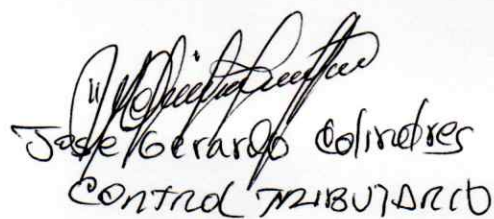 Jose Gerardo Colindres
CONTROL TRIBUTARIO